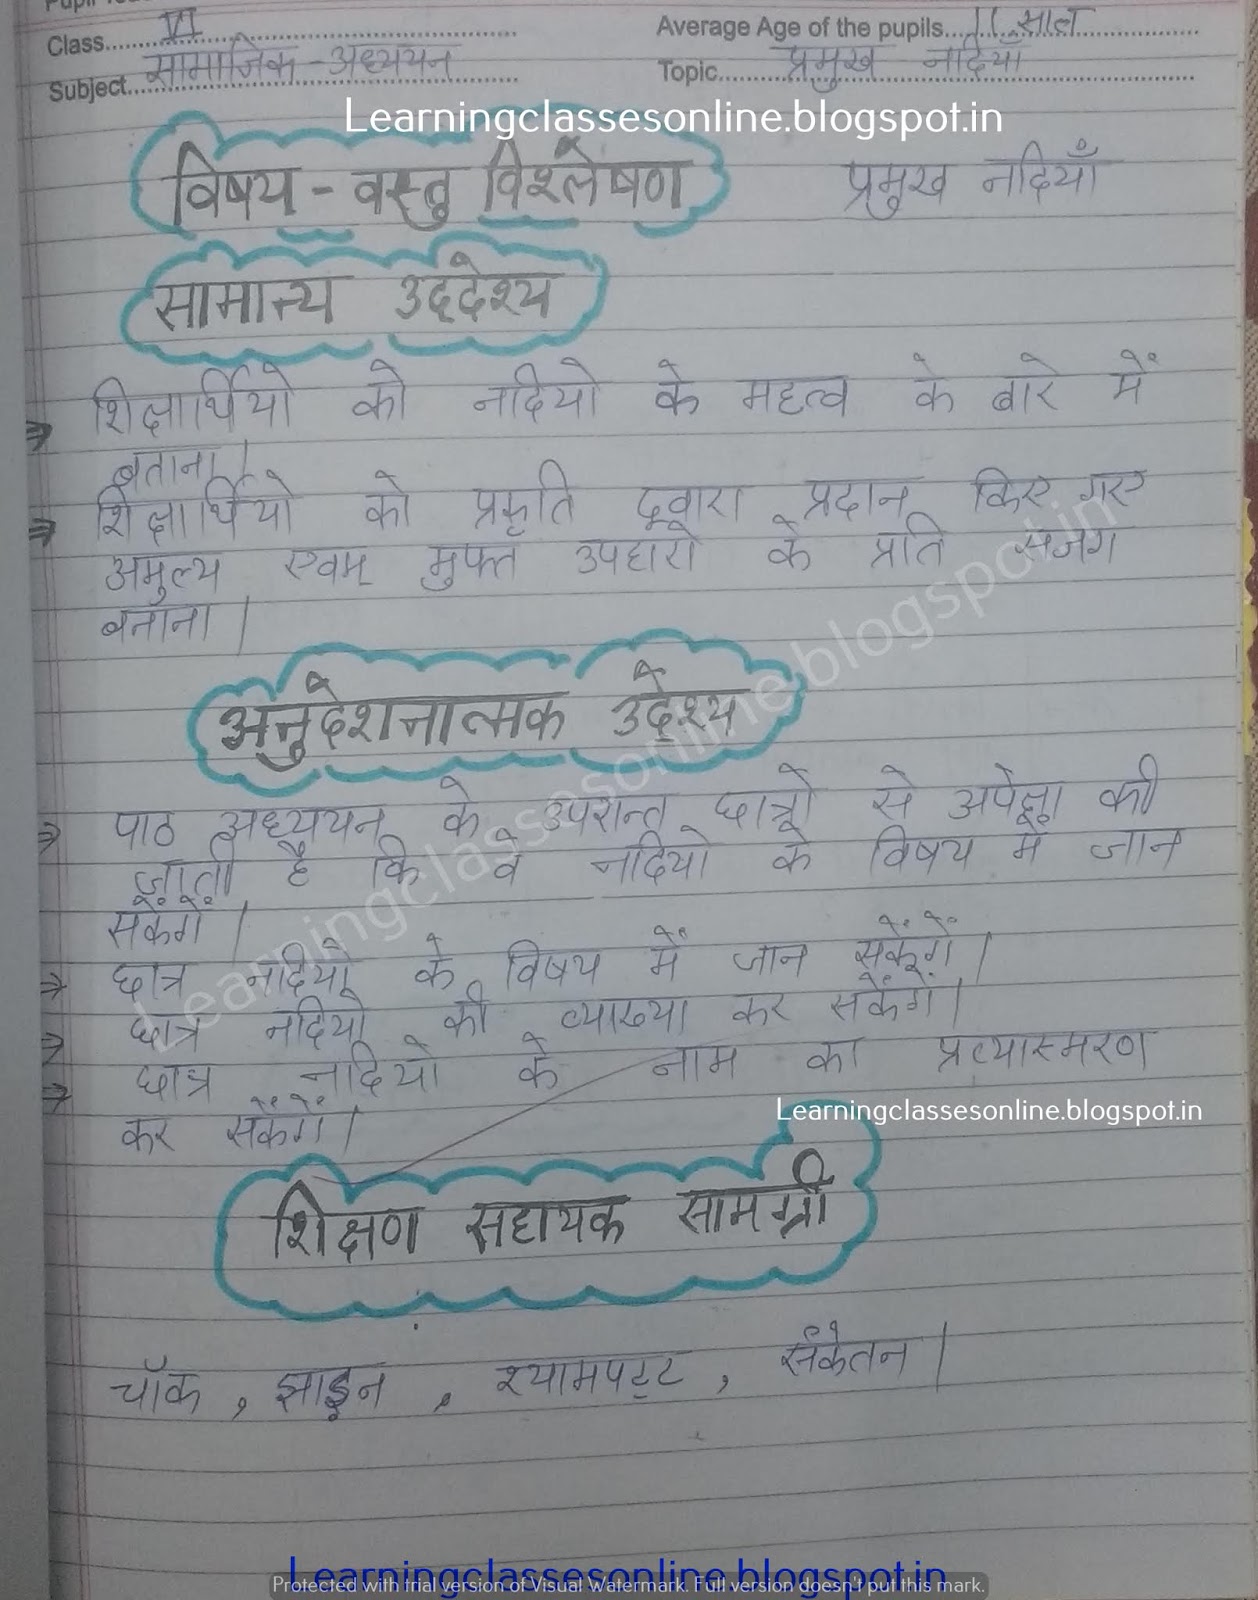 Class.....VI.....
Average Age of the pupils....11 साल
Subject....सामाजिक-अध्ययन
Topic.....प्रमुख नदियाँ
Learningclassesonline.blogspot.in
विषय-वस्तु विश्लेषण प्रमुख नदियाँ
सामान्य उद्देश्य
⇒ शिक्षार्थियो को नदियो के महत्व के बारे में
बताना।
⇒ शिक्षार्थियो को प्रकृति द्वारा प्रदान किए गए
अमुल्य एवम् मुफ्त उपहारो के प्रति सजग
बनाना।
अनुदेशनात्मक उद्देश्य
⇒ पाठ अध्ययन के उपरान्त छात्रो से अपेक्षा की
जाती है कि वे नदियो के विषय में जान
सकेंगें।
⇒ छात्र नदियो के विषय में जान सकेंगें।
⇒ छात्र नदियो की व्याख्या कर सकेंगें।
⇒ छात्र नदियो के नाम का प्रत्यास्मरण
कर सकेंगें।
Learningclassesonline.blogspot.in
शिक्षण सहायक सामग्री
चॉक, झाड़न, श्यामपट्ट, संकेतन।
Learningclassesonline.blogspot.in
Learningclassesonline.blogspot.in
Protected with trial version of Visual Watermark. Full version doesn't put this mark.